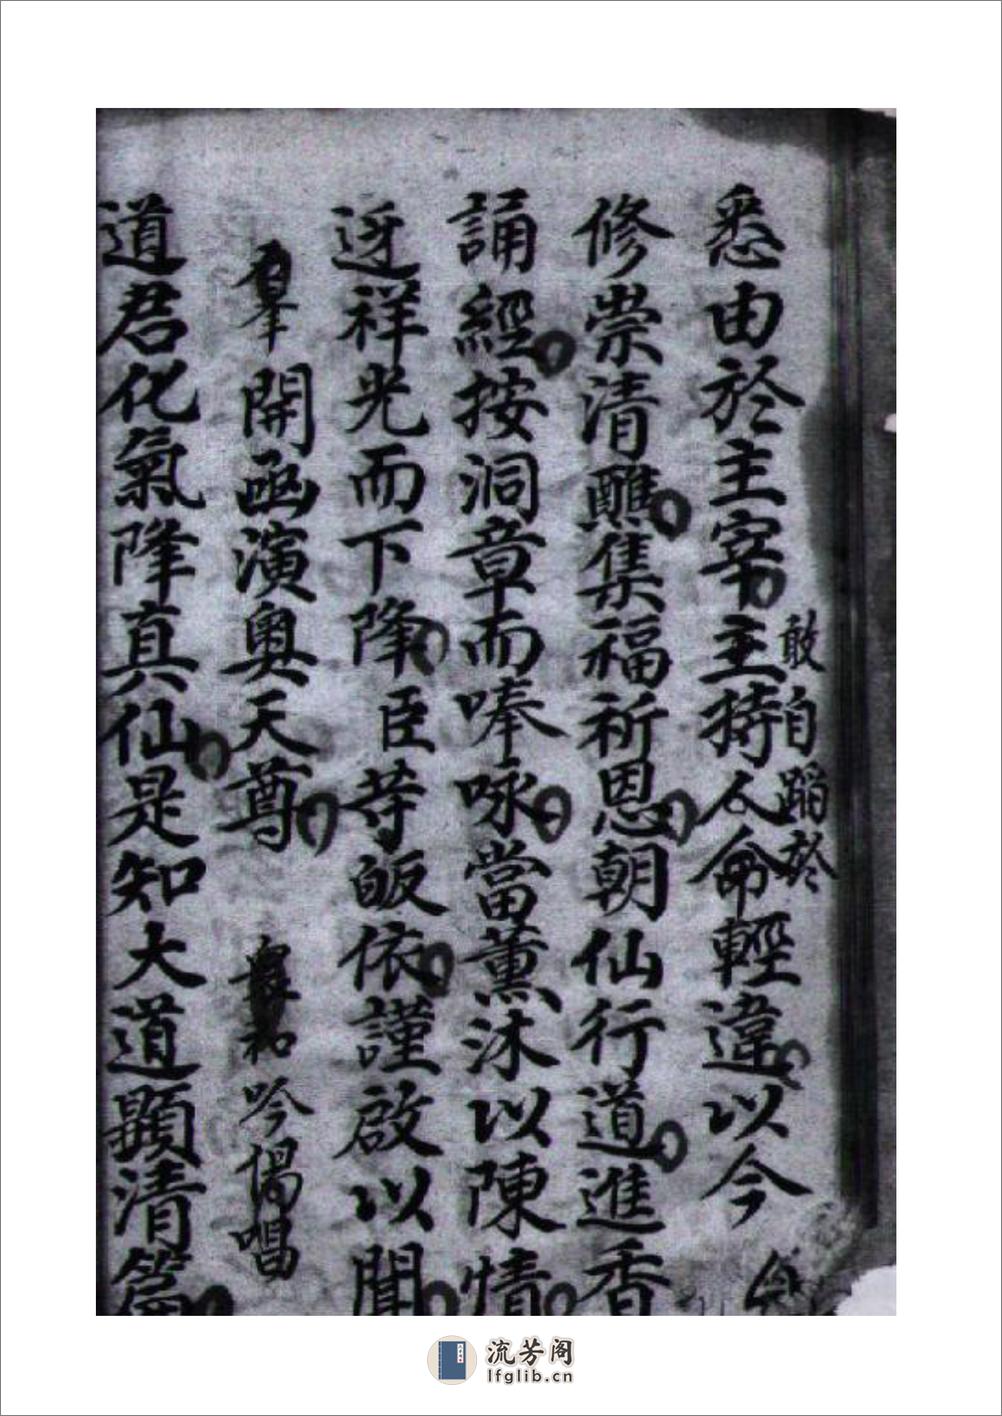 悉由於主宰主持人命輕違以今
敢自蹈於
修崇清醮集福祈恩朝仙行道進香
誦經按洞章而唪咏當薰沐以陳情
迓祥光而下降臣等皈依謹啟以聞
羣 開函演奧天尊 吟偈唱
道君化氣降真仙是知大道顕清篇
流芳阁
lfglib.cn